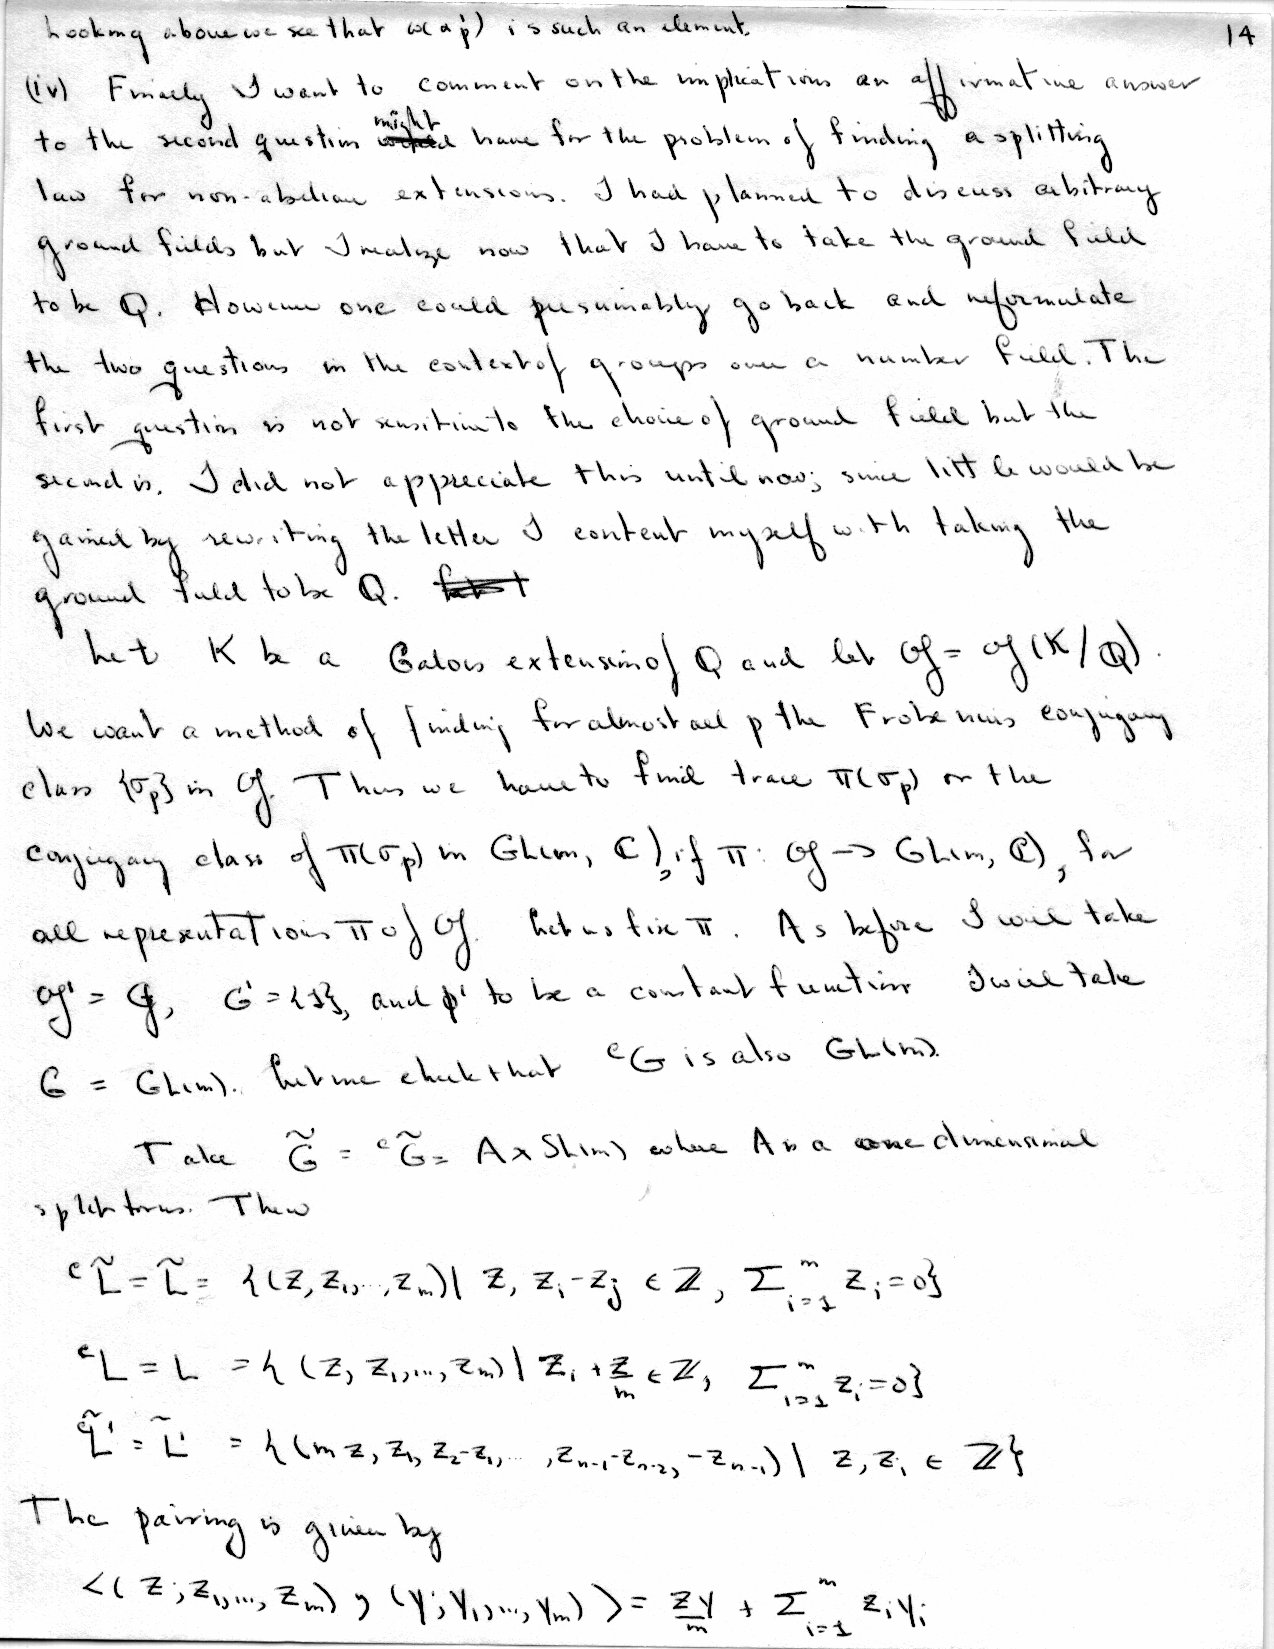 14
Looking above we see that ω(α'p) is such an element.
(iv) Finally I want to comment on the implications an affirmative answer
to the second question might have for the problem of finding a splitting
law for non-abelian extensions. I had planned to discuss arbitrary
ground fields but I realize now that I have to take the ground field
to be Q. However one could presumably go back and reformulate
the two questions in the context of groups over a number field. The
first question is not sensitive to the choice of ground field but the
second is. I did not appreciate this until now; since little would be
gained by rewriting the letter I content myself with taking the
ground field to be Q.
Let K be a Galois extension of Q and let 𝔊 = 𝔊(K/Q).
We want a method of finding for almost all p the Frobenius conjugacy
class {σp} in 𝔊. Thus we have to find trace π(σp) or the
conjugacy class of π(σp) in GL(m, ℂ), if π: 𝔊 → GL(m, ℂ), for
all representations π of 𝔊. Let us fix π. As before I will take
𝔊' = 𝔊, G' = {1}, and φ' to be a constant function I will take
G = GL(m). Let me check that ᶜG is also GL(m).
Take G̃ = ᶜG̃ = A x SL(m) where A is a one dimensional
split torus. Then
ᶜL̃ = L̃ = {(z, z₁,..., zₘ) | z, zᵢ - zⱼ ∈ ℤ, Σᵢ₌₁ᵐ zᵢ = 0}
ᶜL = L = {(z, z₁,..., zₘ) | zᵢ + z/m ∈ ℤ, Σᵢ₌₁ᵐ zᵢ = 0}
ᶜL̃' = L̃' = {(mz, z₁, z₂-z₁, ..., zₙ₋₁-zₙ₋₂, -zₙ₋₁) | z, zᵢ ∈ ℤ}
The pairing is given by
<(z; z₁,..., zₘ), (y; y₁,..., yₘ)> = zy/m + Σᵢ₌₁ᵐ zᵢyᵢ